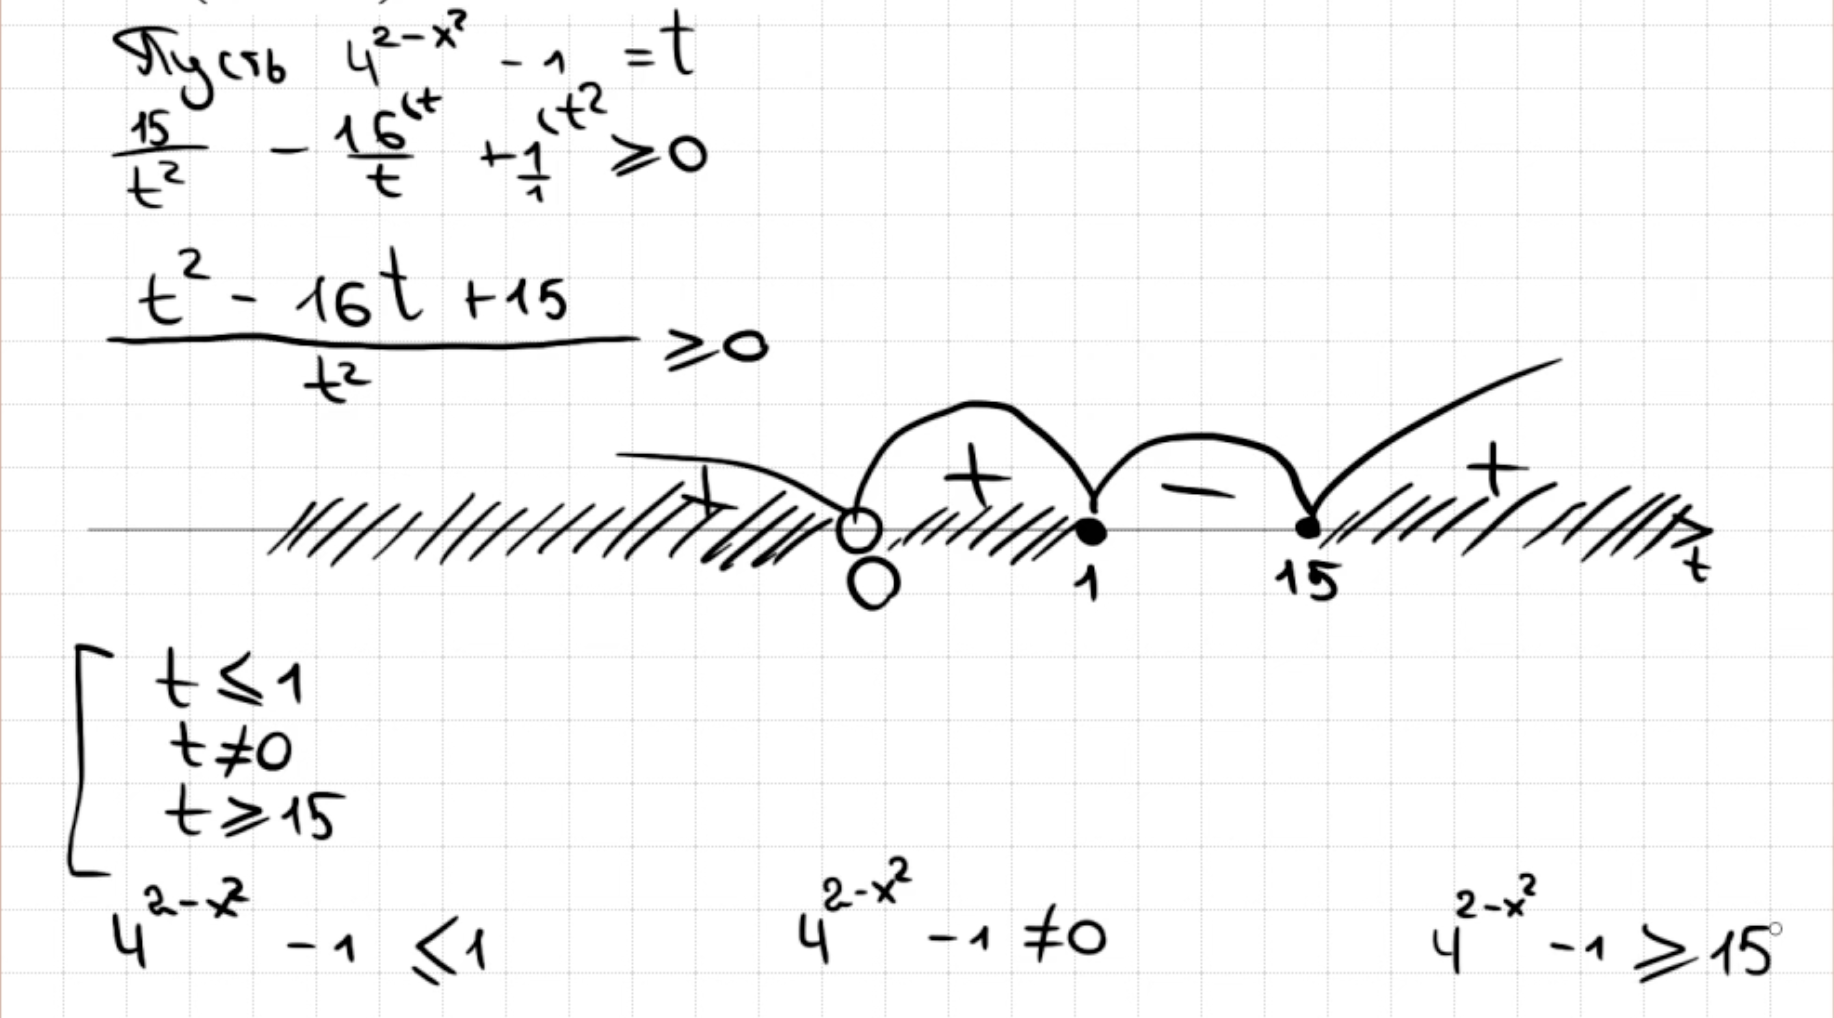 Пусть 4^{2-x^2} - 1 = t
15/t^2 - 16^{(t}/t + 1^{(t^2}/1 ⩾ 0
(t^2 - 16t + 15)/t^2 ⩾ 0
+ + − +
0 1 15 t
[ t ⩽ 1
t ≠ 0
t ⩾ 15
4^{2-x^2} - 1 ⩽ 1    4^{2-x^2} - 1 ≠ 0    4^{2-x^2} - 1 ⩾ 15